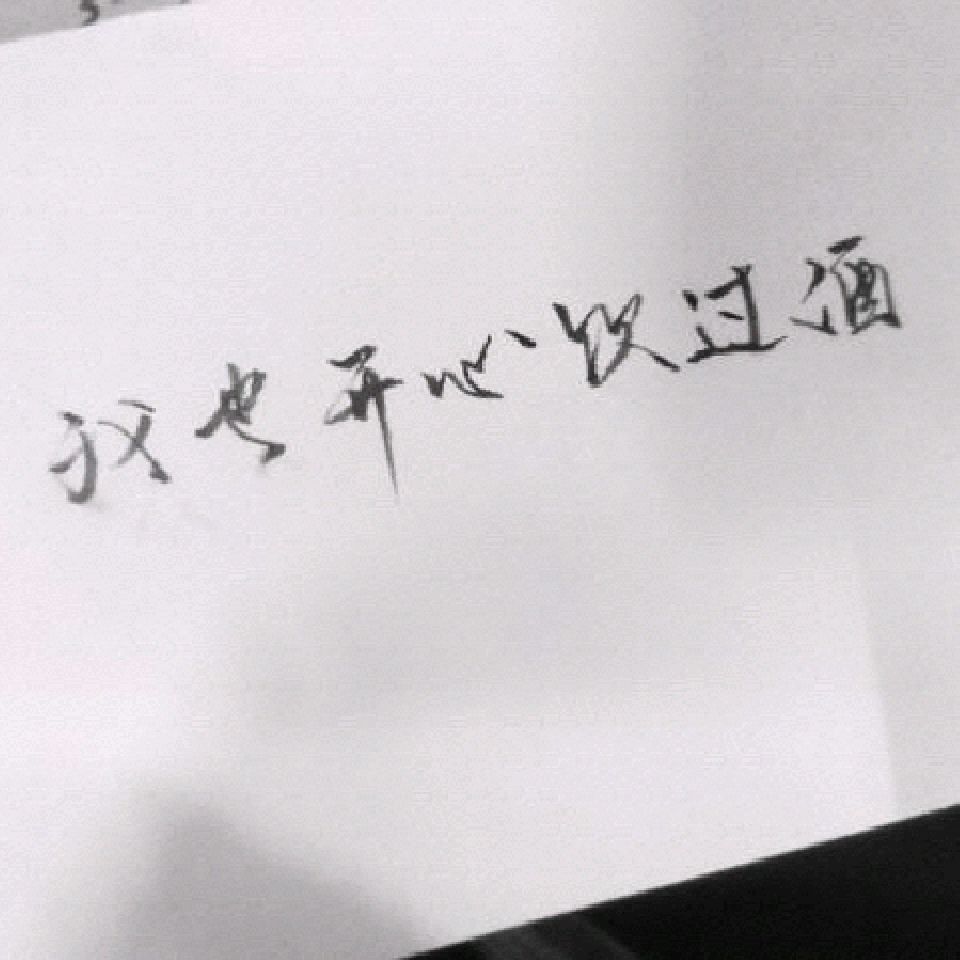 我也开心饮过酒